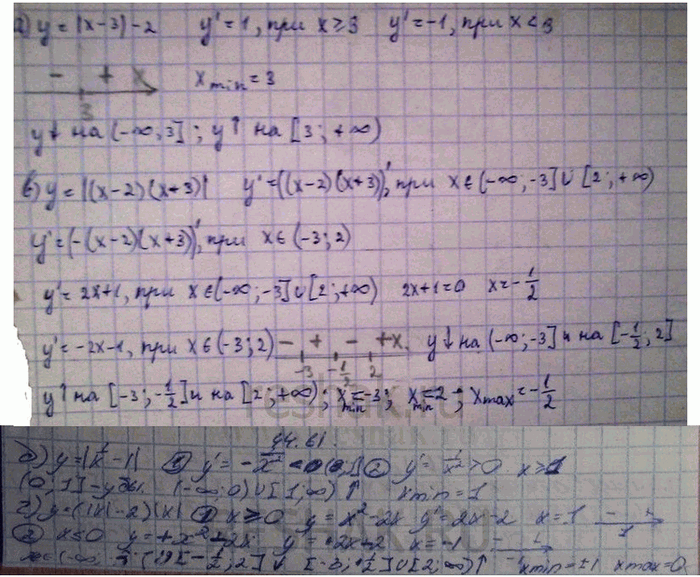 а) y = |x-3|-2 y'=1, при x≥3 y'=-1, при x<3
- + x x min = 3
3
y↓ на (-∞;3]; y↑ на [3;+∞)
в) y=|(x-2)(x+3)| y'=((x-2)(x+3))', при x∈(-∞;-3]∪[2;+∞)
y'=(-(x-2)(x+3))', при x∈(-3;2)
y'=2x+1, при x∈(-∞;-3]∪[2;+∞) 2x+1=0 x=-1/2
y'=-2x-1, при x∈(-3;2) - + - + x y↓ на (-∞;-3] и на [-1/2;2]
-3 -1/2 2
y↑ на [-3;-1/2] и на [2;+∞); x min=-3; x min=2; x max=-1/2
44.61
б) y=|1/x-1| ① y'=-1/x² ② y'=1/x²>0
(0;1] - убыв. (-∞;0)∪[1;∞)↑ x min=1
г) y=(|x|-2)|x| ① x≥0 y=x²-2x y'=2x-2 x=1 - +
1
② x≤0 y=+x²+2x y'=2x+2 x=-1 - +
-1
[-1/2;2]↓ [-3;-1/2]∪[2;∞)↑ x min=±1 x max=0